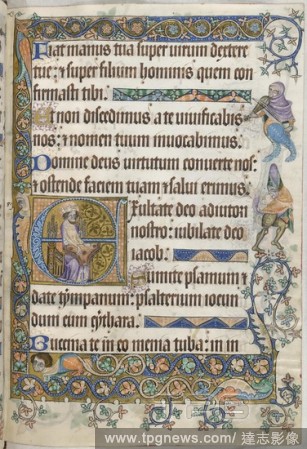 Fiat manus tua super virum dextere
tue: & super filium hominis quem con
firmasti tibi.
Et non discedimus a te vivificabis
nos: & nomen tuum invocabimus.
Domine deus virtutum converte nos:
& ostende faciem tuam & salvi erimus.
Exultate deo adiutori
nostro: iubilate deo
iacob.
Sumite psalmum &
date tympanum: psalterium iocun
dum cum cythara.
Bucinate in neomenia tuba: in in
www.tpgnews.com / 達志影像